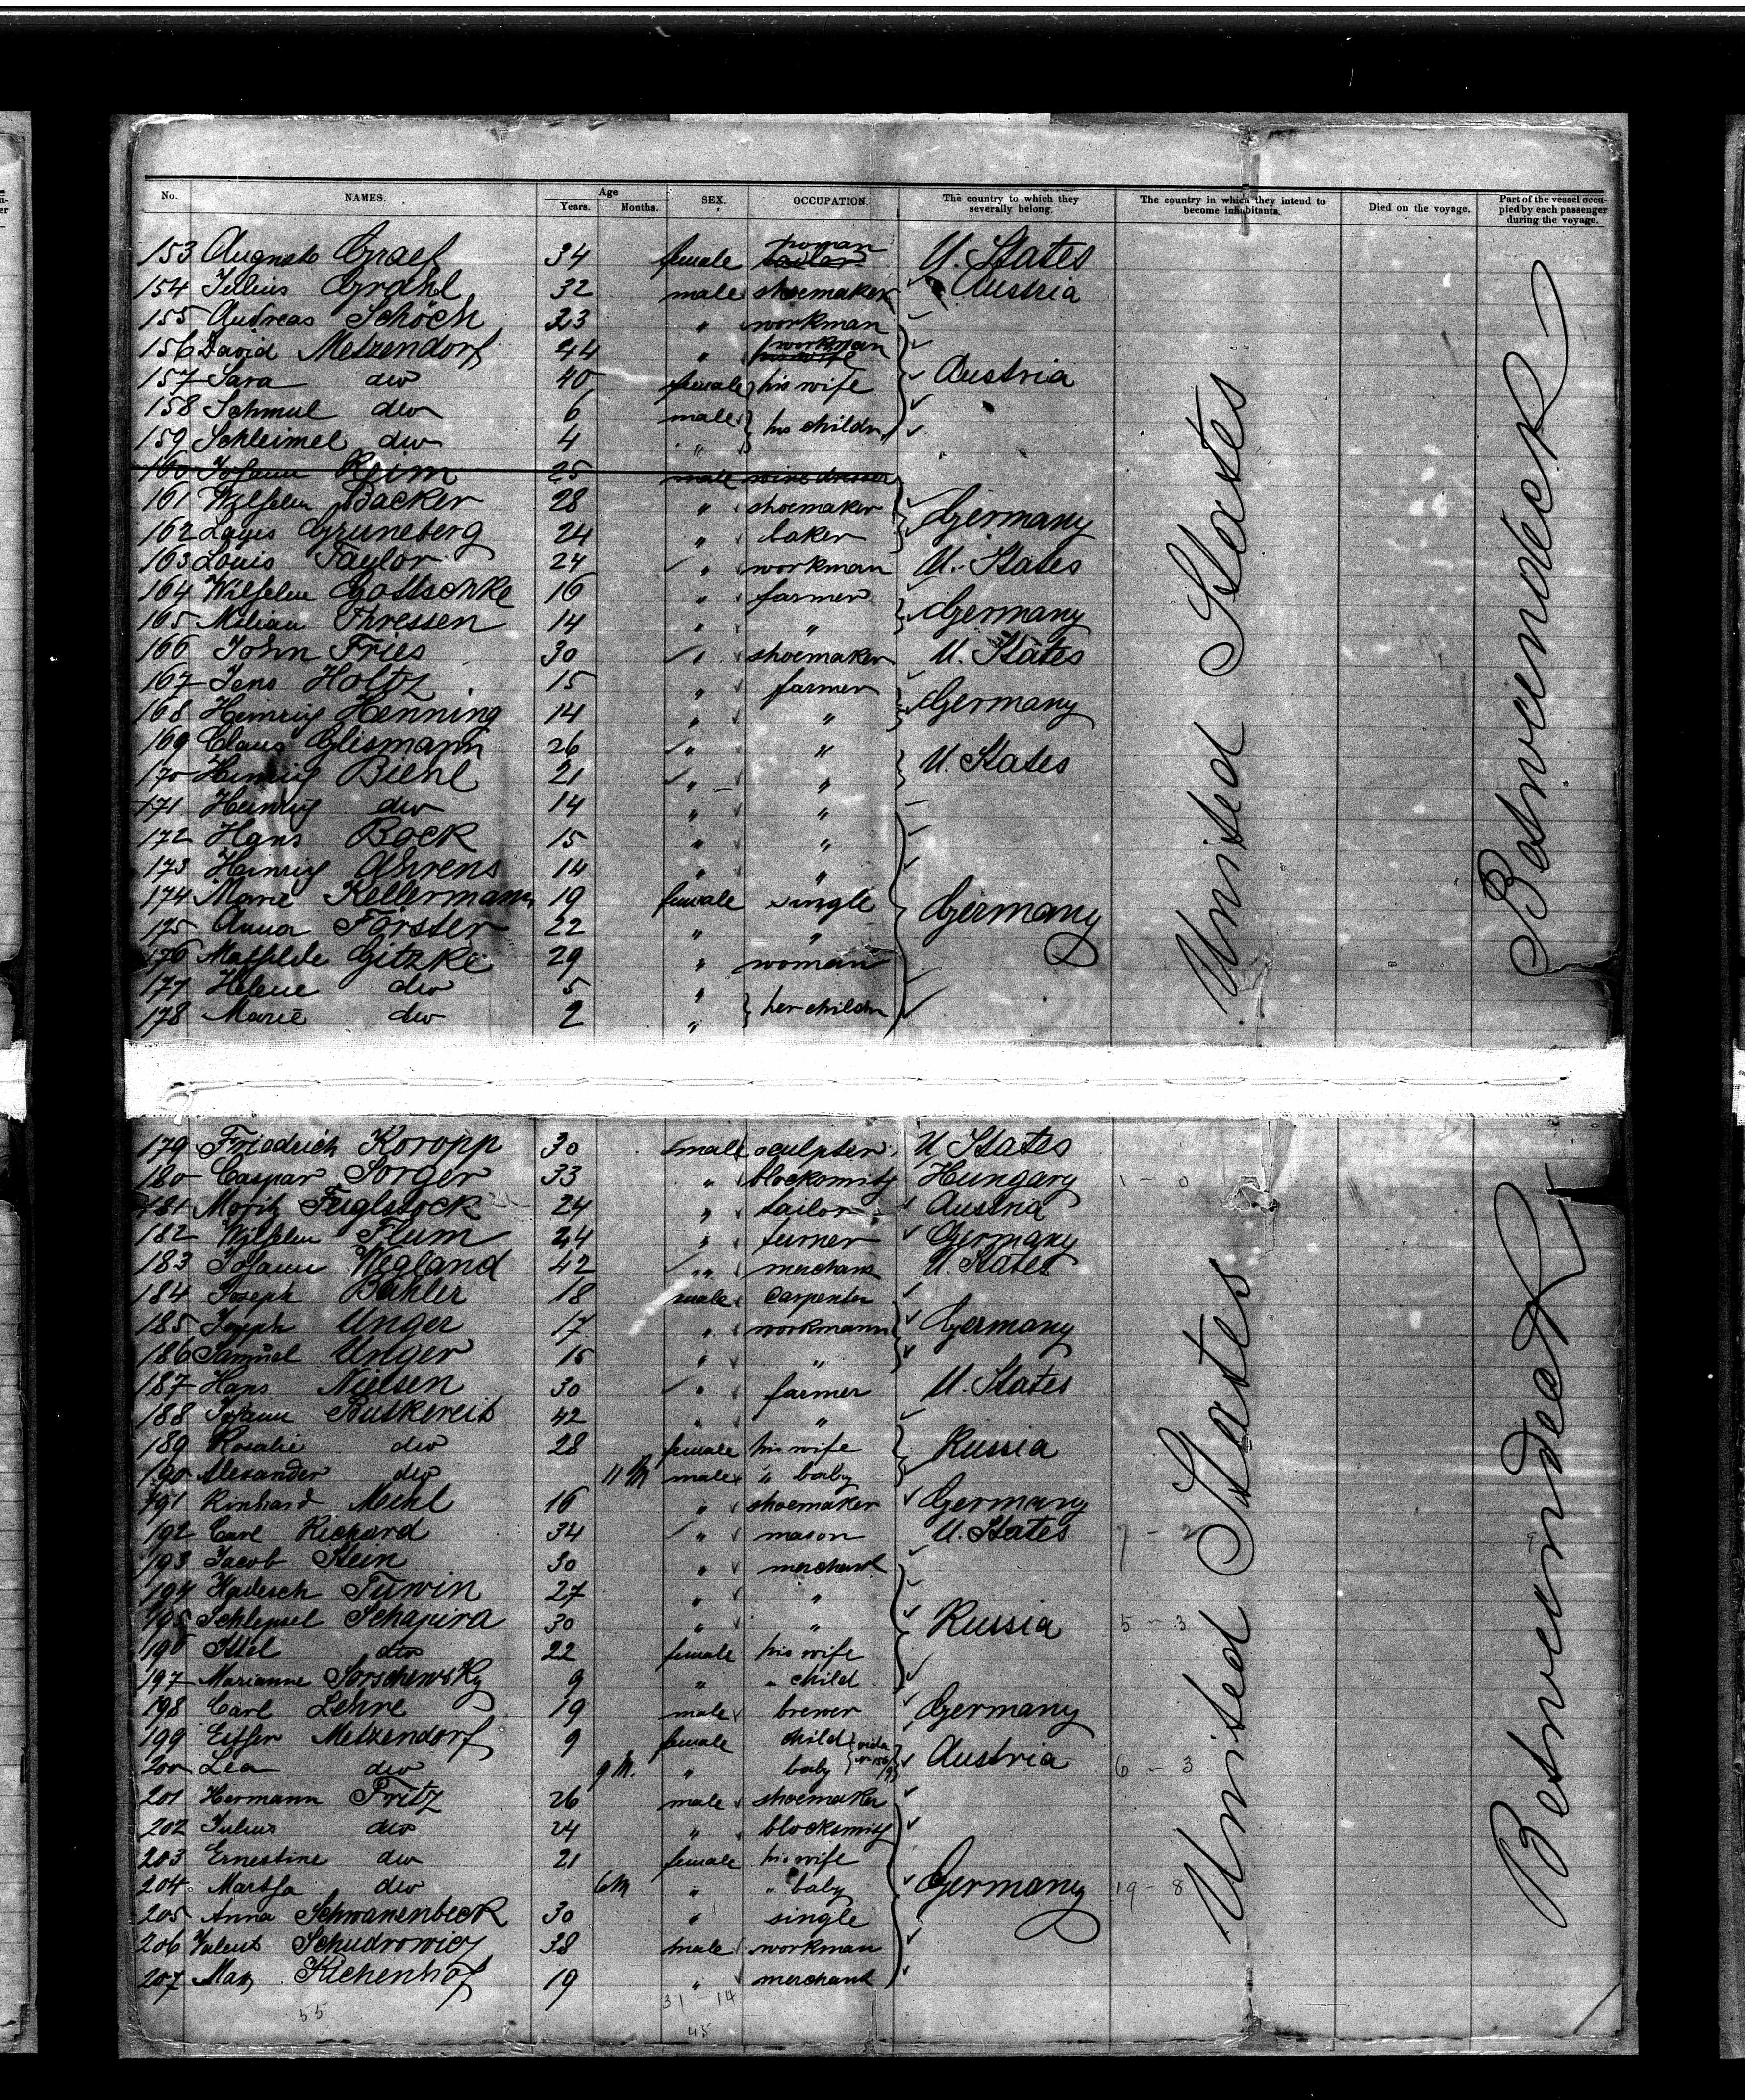 No. NAMES. Age Years. Months. SEX. OCCUPATION. The country to which they severally belong. The country in which they intend to become inhabitants. Died on the voyage. Part of the vessel occupied by each passenger during the voyage.
153 Augusto Graef 34 female woman U. States
154 Julius Grahl 32 male shoemaker Austria
155 Andreas Schöch 23 " workman
156 David Metzendorf 44 " workman
157 Sara dio 40 female his wife Austria
158 Schmul dio 6 male
159 Schleimel dio 4 " his childn
160 Johann Reim 25 male wine dresser
161 Wilhelm Backer 28 " shoemaker Germany
162 Louis Gruneberg 24 " baker
163 Louis Taylor 24 " workman U. States
164 Wilhelm Gottschke 16 " farmer Germany
165 Milian Thressen 14 " "
166 John Fries 30 " shoemaker U. States
167 Jens Holtz 15 " farmer Germany
168 Heinrich Henning 14 " "
169 Claus Glismann 26 " " U. States
170 Heinrich Biehl 21 " "
171 Heinrich dio 14 " "
172 Hans Bock 15 " "
173 Heinrich Ahrens 14 " "
174 Marie Kellermann 19 female single Germany
175 Anna Förster 22 " "
176 Mathilde Gitzke 29 " woman
177 Helene dio 5 "
178 Marie dio 2 " her childn
United States
Betweendeck
179 Friedrich Koropp 30 male sculpter U. States
180 Caspar Sorger 33 " blocksmith Hungary 1 - 0
181 Moritz Feiglstock 24 " tailor Austria
182 Wilhelm Flum 24 " turner Germany
183 Johann Wegland 42 " merchant U. States
184 Joseph Bühler 18 male carpenter
185 Joseph Unger 17 " workmann Germany
186 Samuel Unger 15 " "
187 Hans Nielsen 30 " farmer U. States
188 Johann Buskereit 42 " "
189 Rosalie dio 28 female his wife Russia
190 Alexander dio 11 M male " baby
191 Rinhard Mehl 16 " shoemaker Germany
192 Carl Richard 34 " mason U. States 7 - 2
193 Jacob Stein 30 " merchant
194 Hadesch Turwin 27 " "
195 Schlepsel Schapira 30 " " Russia 5 - 3
196 Ittel dio 22 female his wife
197 Marianne Sorschewsky 9 " " child
198 Carl Lehre 19 male brewer Germany
199 Esther Metzendorf 9 female child Austria
200 Lea dio 9 M. " baby 6 - 3
201 Hermann Fritz 26 male shoemaker
202 Julius dio 24 " blocksmith
203 Ernestine dio 21 female his wife
204 Martha dio 6 M " " baby Germany 19 - 8
205 Anna Schwanenbeck 30 " single
206 Valent Schudrowicz 38 male workman
207 Max Kichenhof 19 " merchant
United States
Betweendeck
55 31 - 14
45